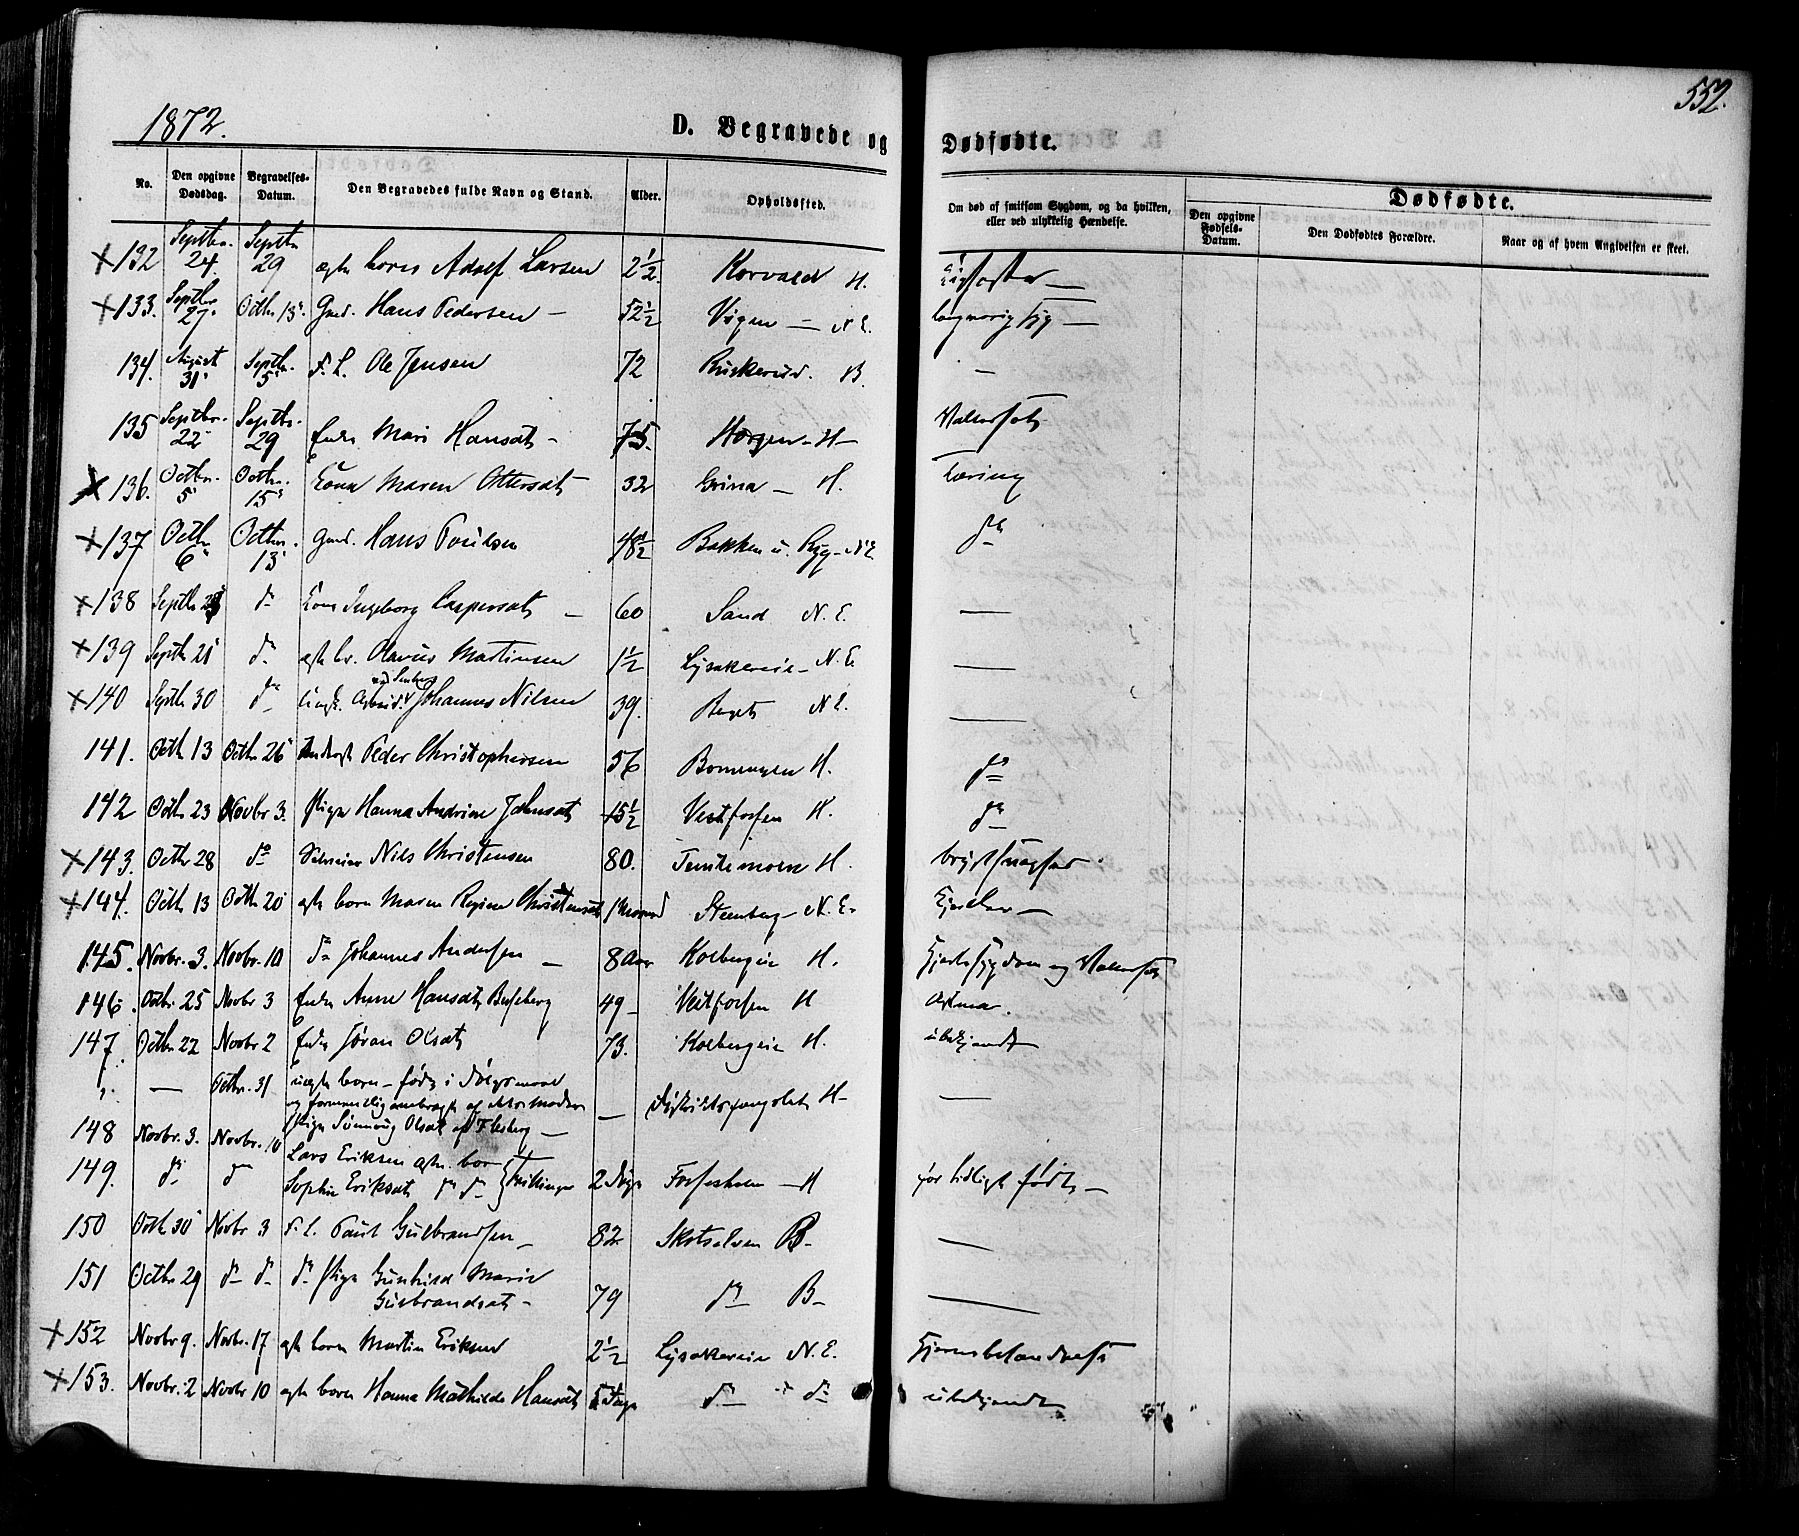 1872.
552.
D. Begravede og Dødfødte.
No.
Den opgivne Dødsdag.
Begravelses-Datum.
Den Begravedes fulde Navn og Stand.
Alder.
Opholdssted.
Om død af smitsom Sygdom, og da hvilken, eller ved ulykkelig Hændelse.
Dødfødte.
Den opgivne Fødsels-Datum.
Den Dødfødtes Forældre.
Naar og af hvem Angivelsen er skeet.
132 Septbr. 24. Septbr 29 ægte barn Adolf Larsen 2½ Korvald H.
133. Septbr 27 Octbr 13. Gmd. Hans Pedersen - 52½ Vigen - N. E. langvarig Syg -
134. August 31 Septbr. 5 F. L. Ole Jensen 72 Buskerud. B. -
135 Septbr. 22 Septbr. 29 Enke Mari Hansdt - 75. Horgen - H - Vattersot
136. Octbr. 5 Octbr. 15 Kone Maren Ottersdt 32 Grina - H. Tæring
137 Octbr 6 Octbr. 13 Gmd. Hans Poulsen 48½ Bakken u. Ryg - N E. do
138 Septbr do Kone Ingeborg Caspersdt - 60 Sand N. E. -
139 Septbr 21 do ægte br. Olavus Martinsen 1½ Lysakereie - N. E. -
140 Septbr 30 do Johannes Nilsen 39. N E. -
141. Octbr 13 Octbr 26 Peder Christophersen 56 H. do
142 Octbr 23 Novbr 3. Pige Hanna Andrine Johnsdt 15½ Vestfossen H. do
143. Octbr 28 do Nils Christensen 80. H.
144. Octbr 13 Octbr 20 ægte barn Maren Regine Christensdt 1 Maaned Steenberg - N. E.
145. Novbr. 3. Novbr. 10 do Johannes Andersen - 8 Aar Kolbergeie H. Hjertesygdom og Vattersot
146. Octbr. 25 Novbr 3 Enke Anne Hansdt 49 - Vestfossen H Astma.
147. Octbr 22 Novbr 2 Enke Jøran Olsdt 73. Kolbergeie H. ubekjendt
" - Octbr. 31 uægte barn - født i Dølgsmaal - Distriktsfængslet H - -
og formentlig ombragt af dets Moder
Pige Olsdt af Flesberg -
148 Novbr. 3. Novbr. 10 Lars Eriksen ægte. barn } Tvillinger
149. do do Sophie Eriksdt do do 2 Dage Fossesholm - H for tidligt født -
150 Octbr 30 Novbr 3 F. L. Paul Gulbrandsen - 82 Skotselven B - -
151 Octbr 29 do do do Pige Gunhild Marie
Gulbrandsdt - 79 do B - -
152 Novbr 9. Novbr. 17 ægte barn Martin Eriksen 2½ Lysakereie N. E. Hjernebetændelse
153. Novbr. 2 Novbr 10 ægte barn Hanna Mathilde Hansdt 5 Dage do do ubekjendt